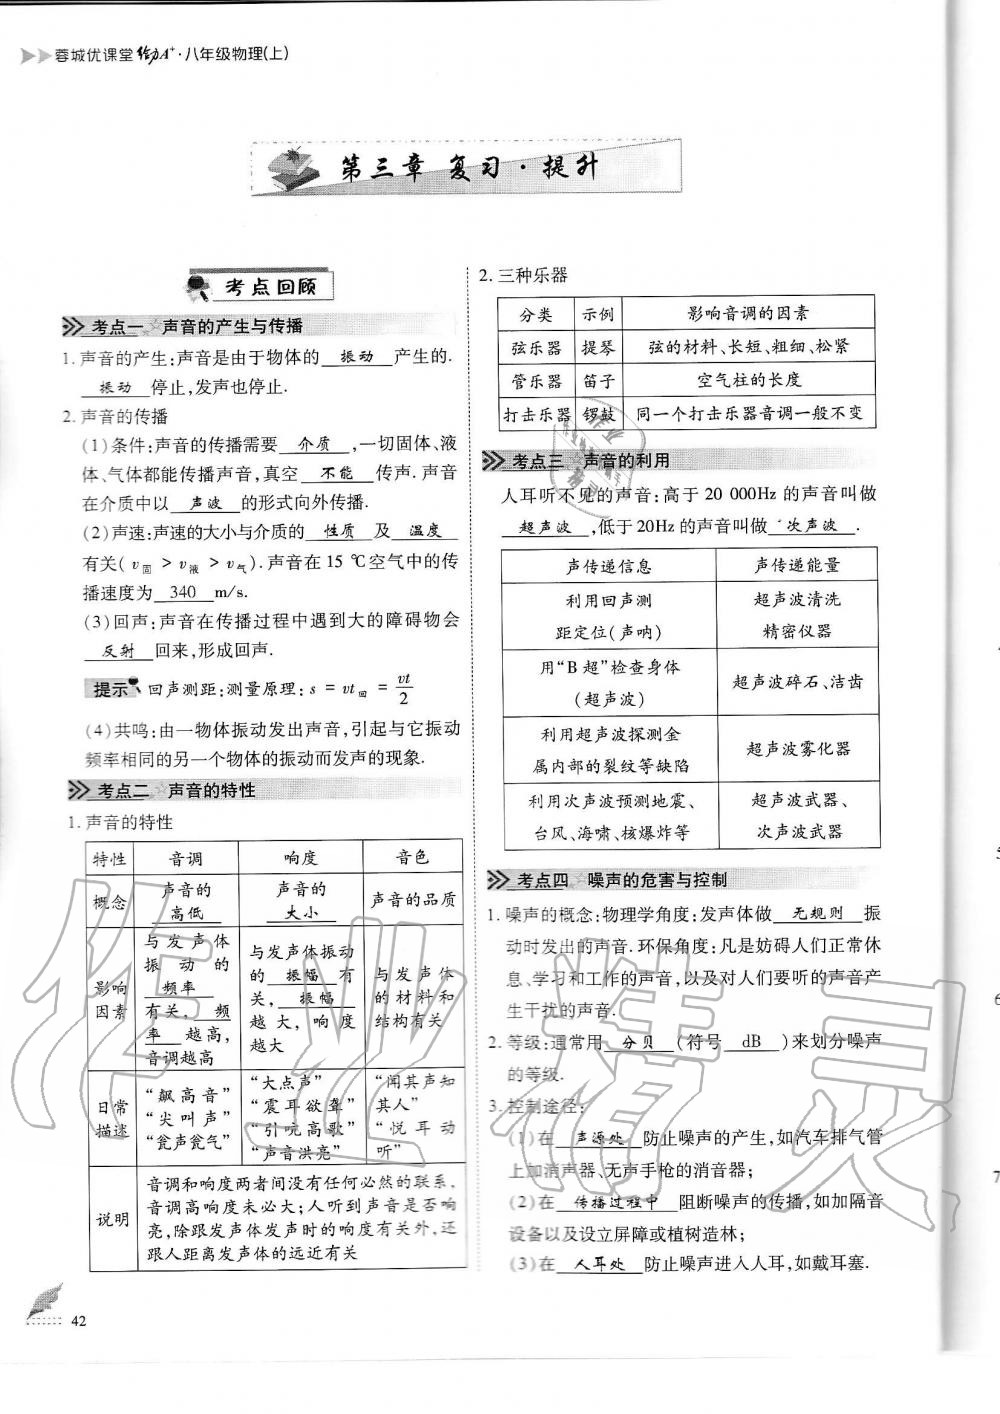 蓉城优课堂 给力A+·八年级物理(上)
第三章 复习·提升
考点回顾
考点一 声音的产生与传播
1. 声音的产生:声音是由于物体的 振动 产生的.
振动 停止,发声也停止.
2. 声音的传播
(1)条件:声音的传播需要 介质 ,一切固体、液
体、气体都能传播声音,真空 不能 传声. 声音
在介质中以 声波 的形式向外传播.
(2)声速:声速的大小与介质的 性质 及 温度
有关( v固 > v液 > v气 ). 声音在 15 ℃空气中的传
播速度为 340 m/s.
(3)回声:声音在传播过程中遇到大的障碍物会
反射 回来,形成回声.
提示 回声测距:测量原理: s = vt回 = vt/2
(4)共鸣:由一物体振动发出声音,引起与它振动
频率相同的另一个物体的振动而发声的现象.
考点二 声音的特性
1. 声音的特性
特性 音调 响度 音色
概念 声音的 高低 声音的 大小 声音的品质
影响因素
与发声体
振动的
频率
有关, 频
率 越高,
音调越高
与发声体振动
的 振幅 有
关, 振幅
越大,响度
越大
与发声体
的材料和
结构有关
日常描述
“飙高音”
“尖叫声”
“瓮声瓮气”
“大点声”
“震耳欲聋”
“引吭高歌”
“声音洪亮”
“闻其声知
其人”
“悦耳动
听”
说明
音调和响度两者间没有任何必然的联系,
音调高响度未必大;人听到声音是否响
亮,除跟发声体发声时的响度有关外,还
跟人距离发声体的远近有关
42
2. 三种乐器
分类 示例 影响音调的因素
弦乐器 提琴 弦的材料、长短、粗细、松紧
管乐器 笛子 空气柱的长度
打击乐器 锣鼓 同一个打击乐器音调一般不变
考点三 声音的利用
人耳听不见的声音:高于 20 000Hz 的声音叫做
超声波 ,低于 20Hz 的声音叫做 次声波 .
声传递信息 声传递能量
利用回声测
距定位(声呐)
超声波清洗
精密仪器
用“B 超”检查身体
(超声波)
超声波碎石、洁齿
利用超声波探测金
属内部的裂纹等缺陷
超声波雾化器
利用次声波预测地震、
台风、海啸、核爆炸等
超声波武器、
次声波武器
考点四 噪声的危害与控制
1. 噪声的概念:物理学角度:发声体做 无规则 振
动时发出的声音. 环保角度:凡是妨碍人们正常休
息、学习和工作的声音,以及对人们要听的声音产
生干扰的声音.
2. 等级:通常用 分贝 (符号 dB )来划分噪声
的等级.
3. 控制途径:
(1)在 声源处 防止噪声的产生,如汽车排气管
上加消声器、无声手枪的消音器;
(2)在 传播过程中 阻断噪声的传播,如加隔音
设备以及设立屏障或植树造林;
(3)在 人耳处 防止噪声进入人耳,如戴耳塞.
5
6
7
作业精灵